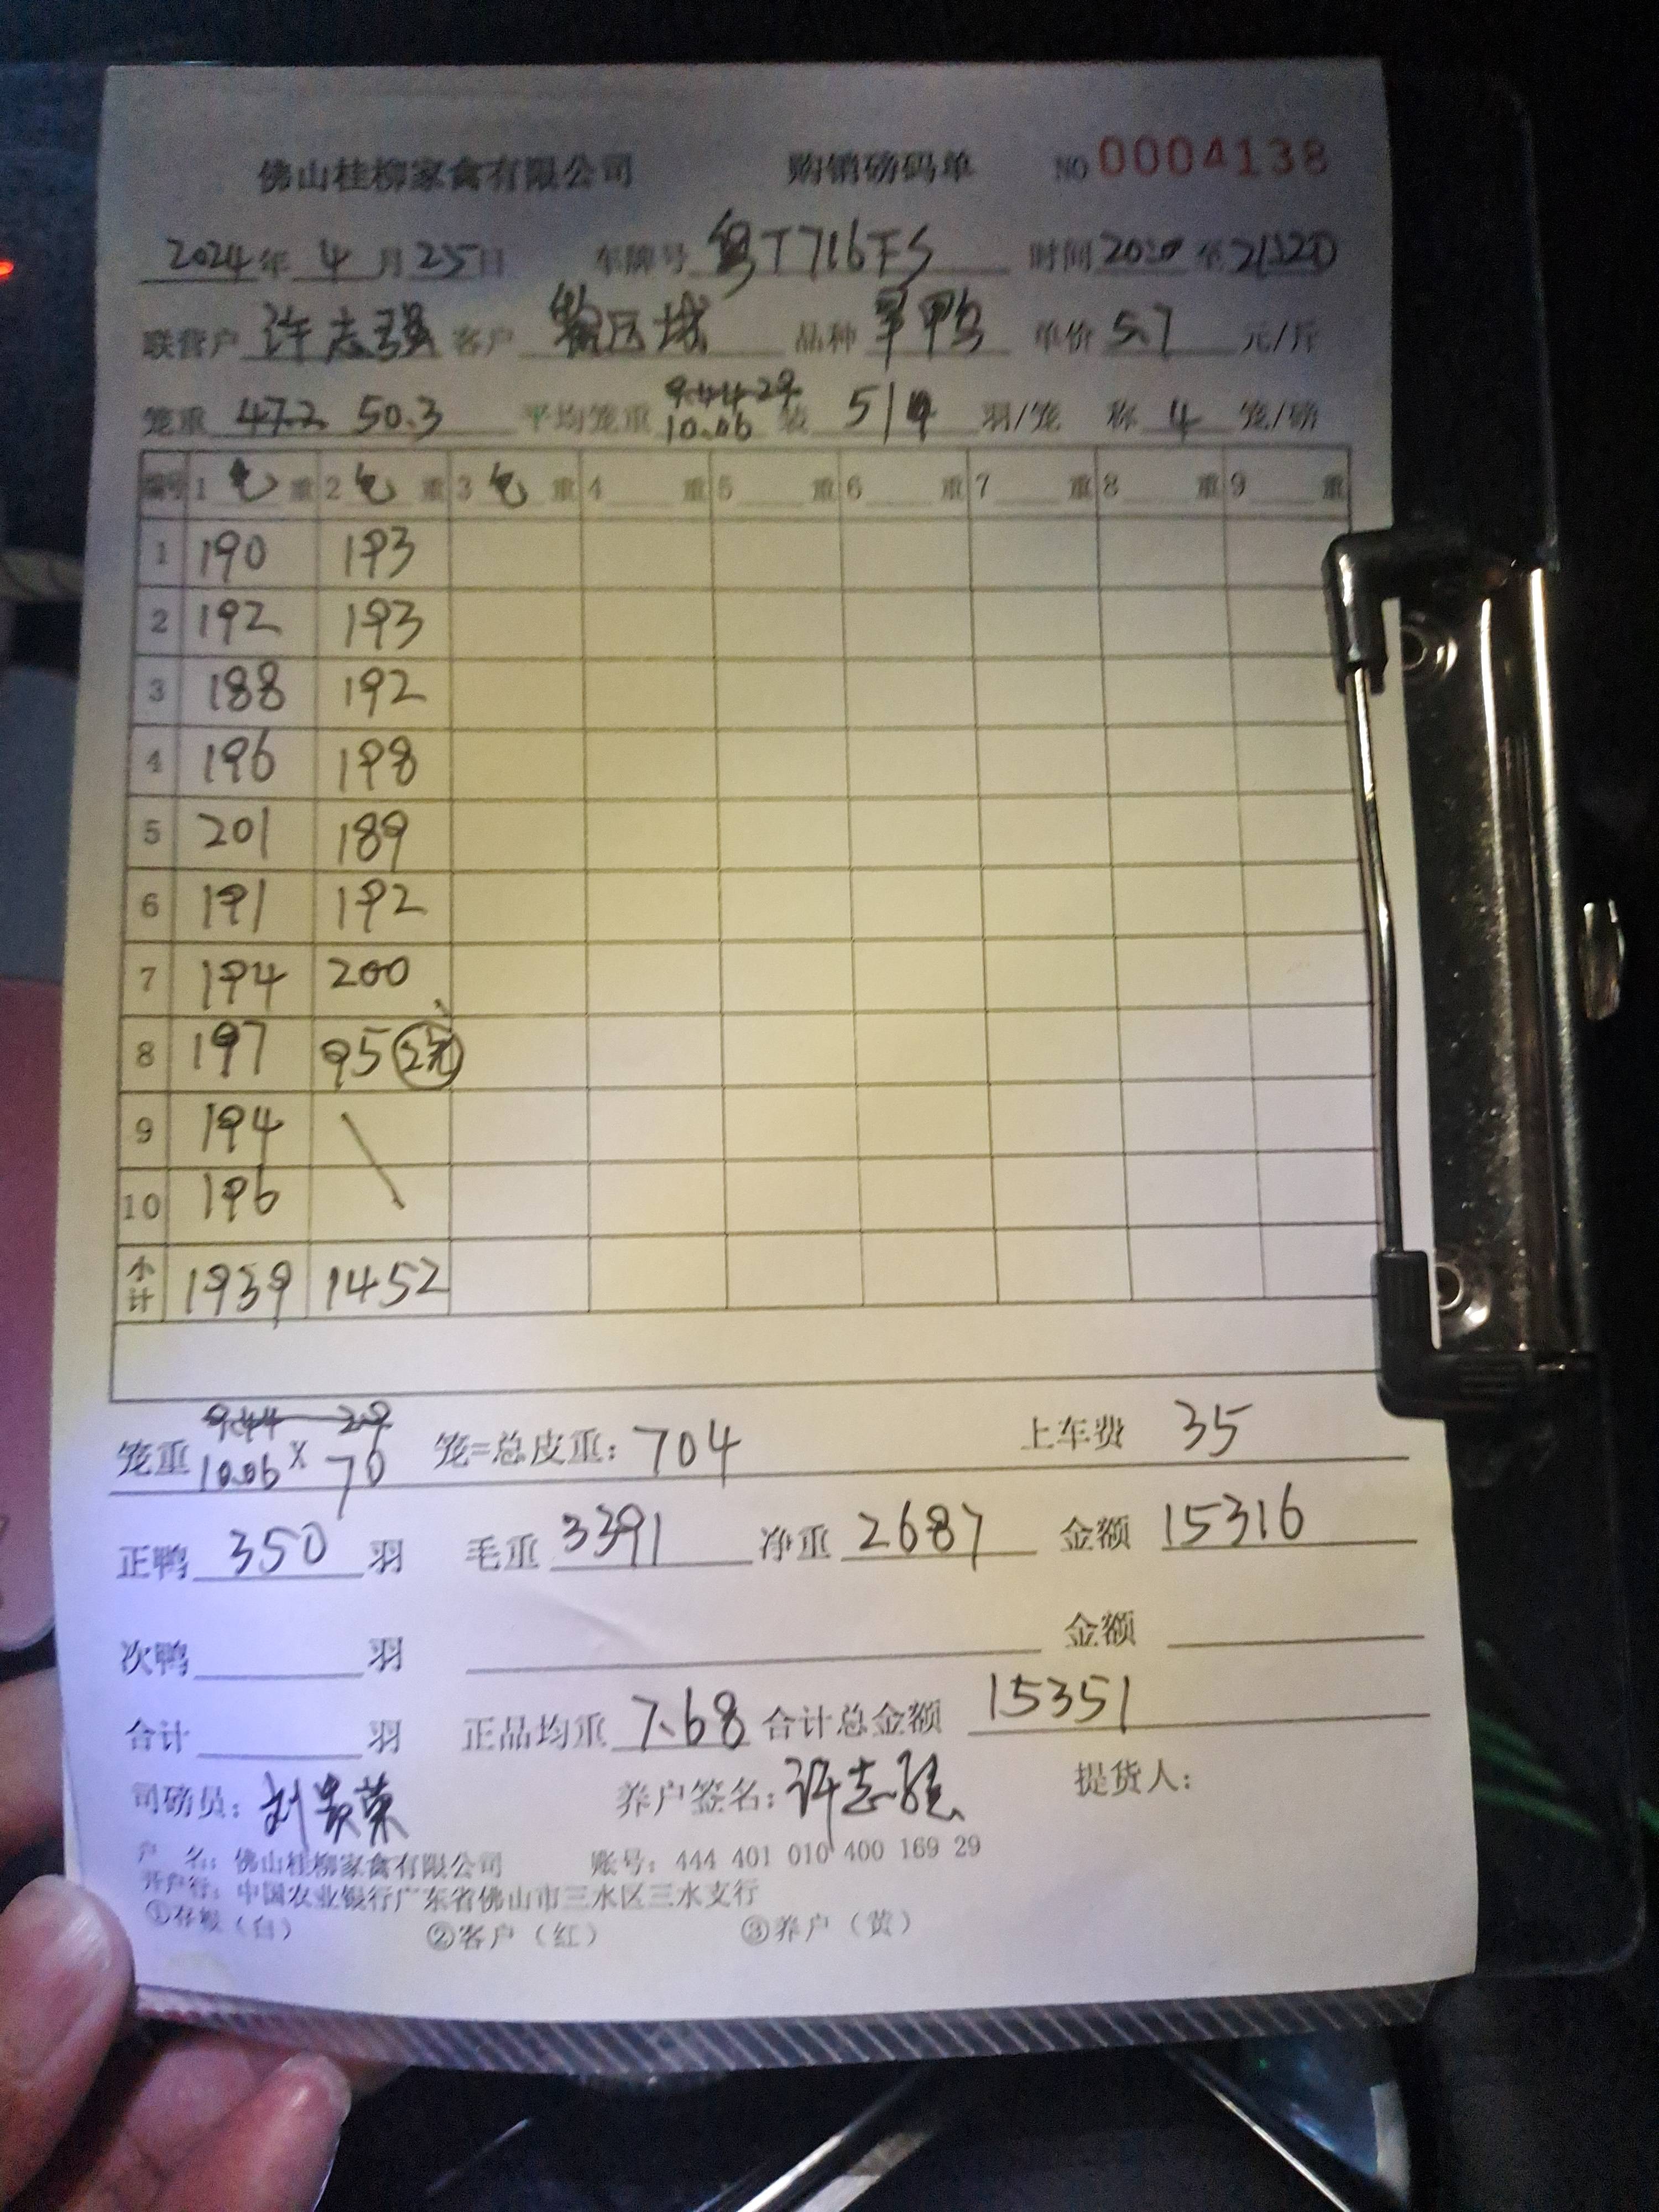 佛山桂柳家禽有限公司 购销磅码单 NO 0004138
2024年 4月 25日 车牌号 粤T716FS 时间 20:20 至 21:20
联营户 许志强 客户 品种 单价 5.7 元/斤
笼重 47.2 50.3 平均笼重 10.06 装 5 羽/笼 称 4 笼/磅
编号 1 重 2 重 3 重 4 重 5 重 6 重 7 重 8 重 9 重
1 190 193
2 192 193
3 188 192
4 196 198
5 201 189
6 191 192
7 194 200
8 197 95
9 194
10 196
小计 1939 1452
9.44 29
笼重 10.06 × 70 笼=总皮重: 704 上车费 35
正鸭 350 羽 毛重 3391 净重 2687 金额 15316
次鸭 羽 金额
合计 羽 正品均重 7.68 合计总金额 15351
司磅员: 养户签名: 许志强 提货人:
户 名: 佛山桂柳家禽有限公司 账号: 444 401 010 400 169 29
开户行: 中国农业银行广东省佛山市三水区三水支行
①存根（白） ②客户（红） ③养户（黄）